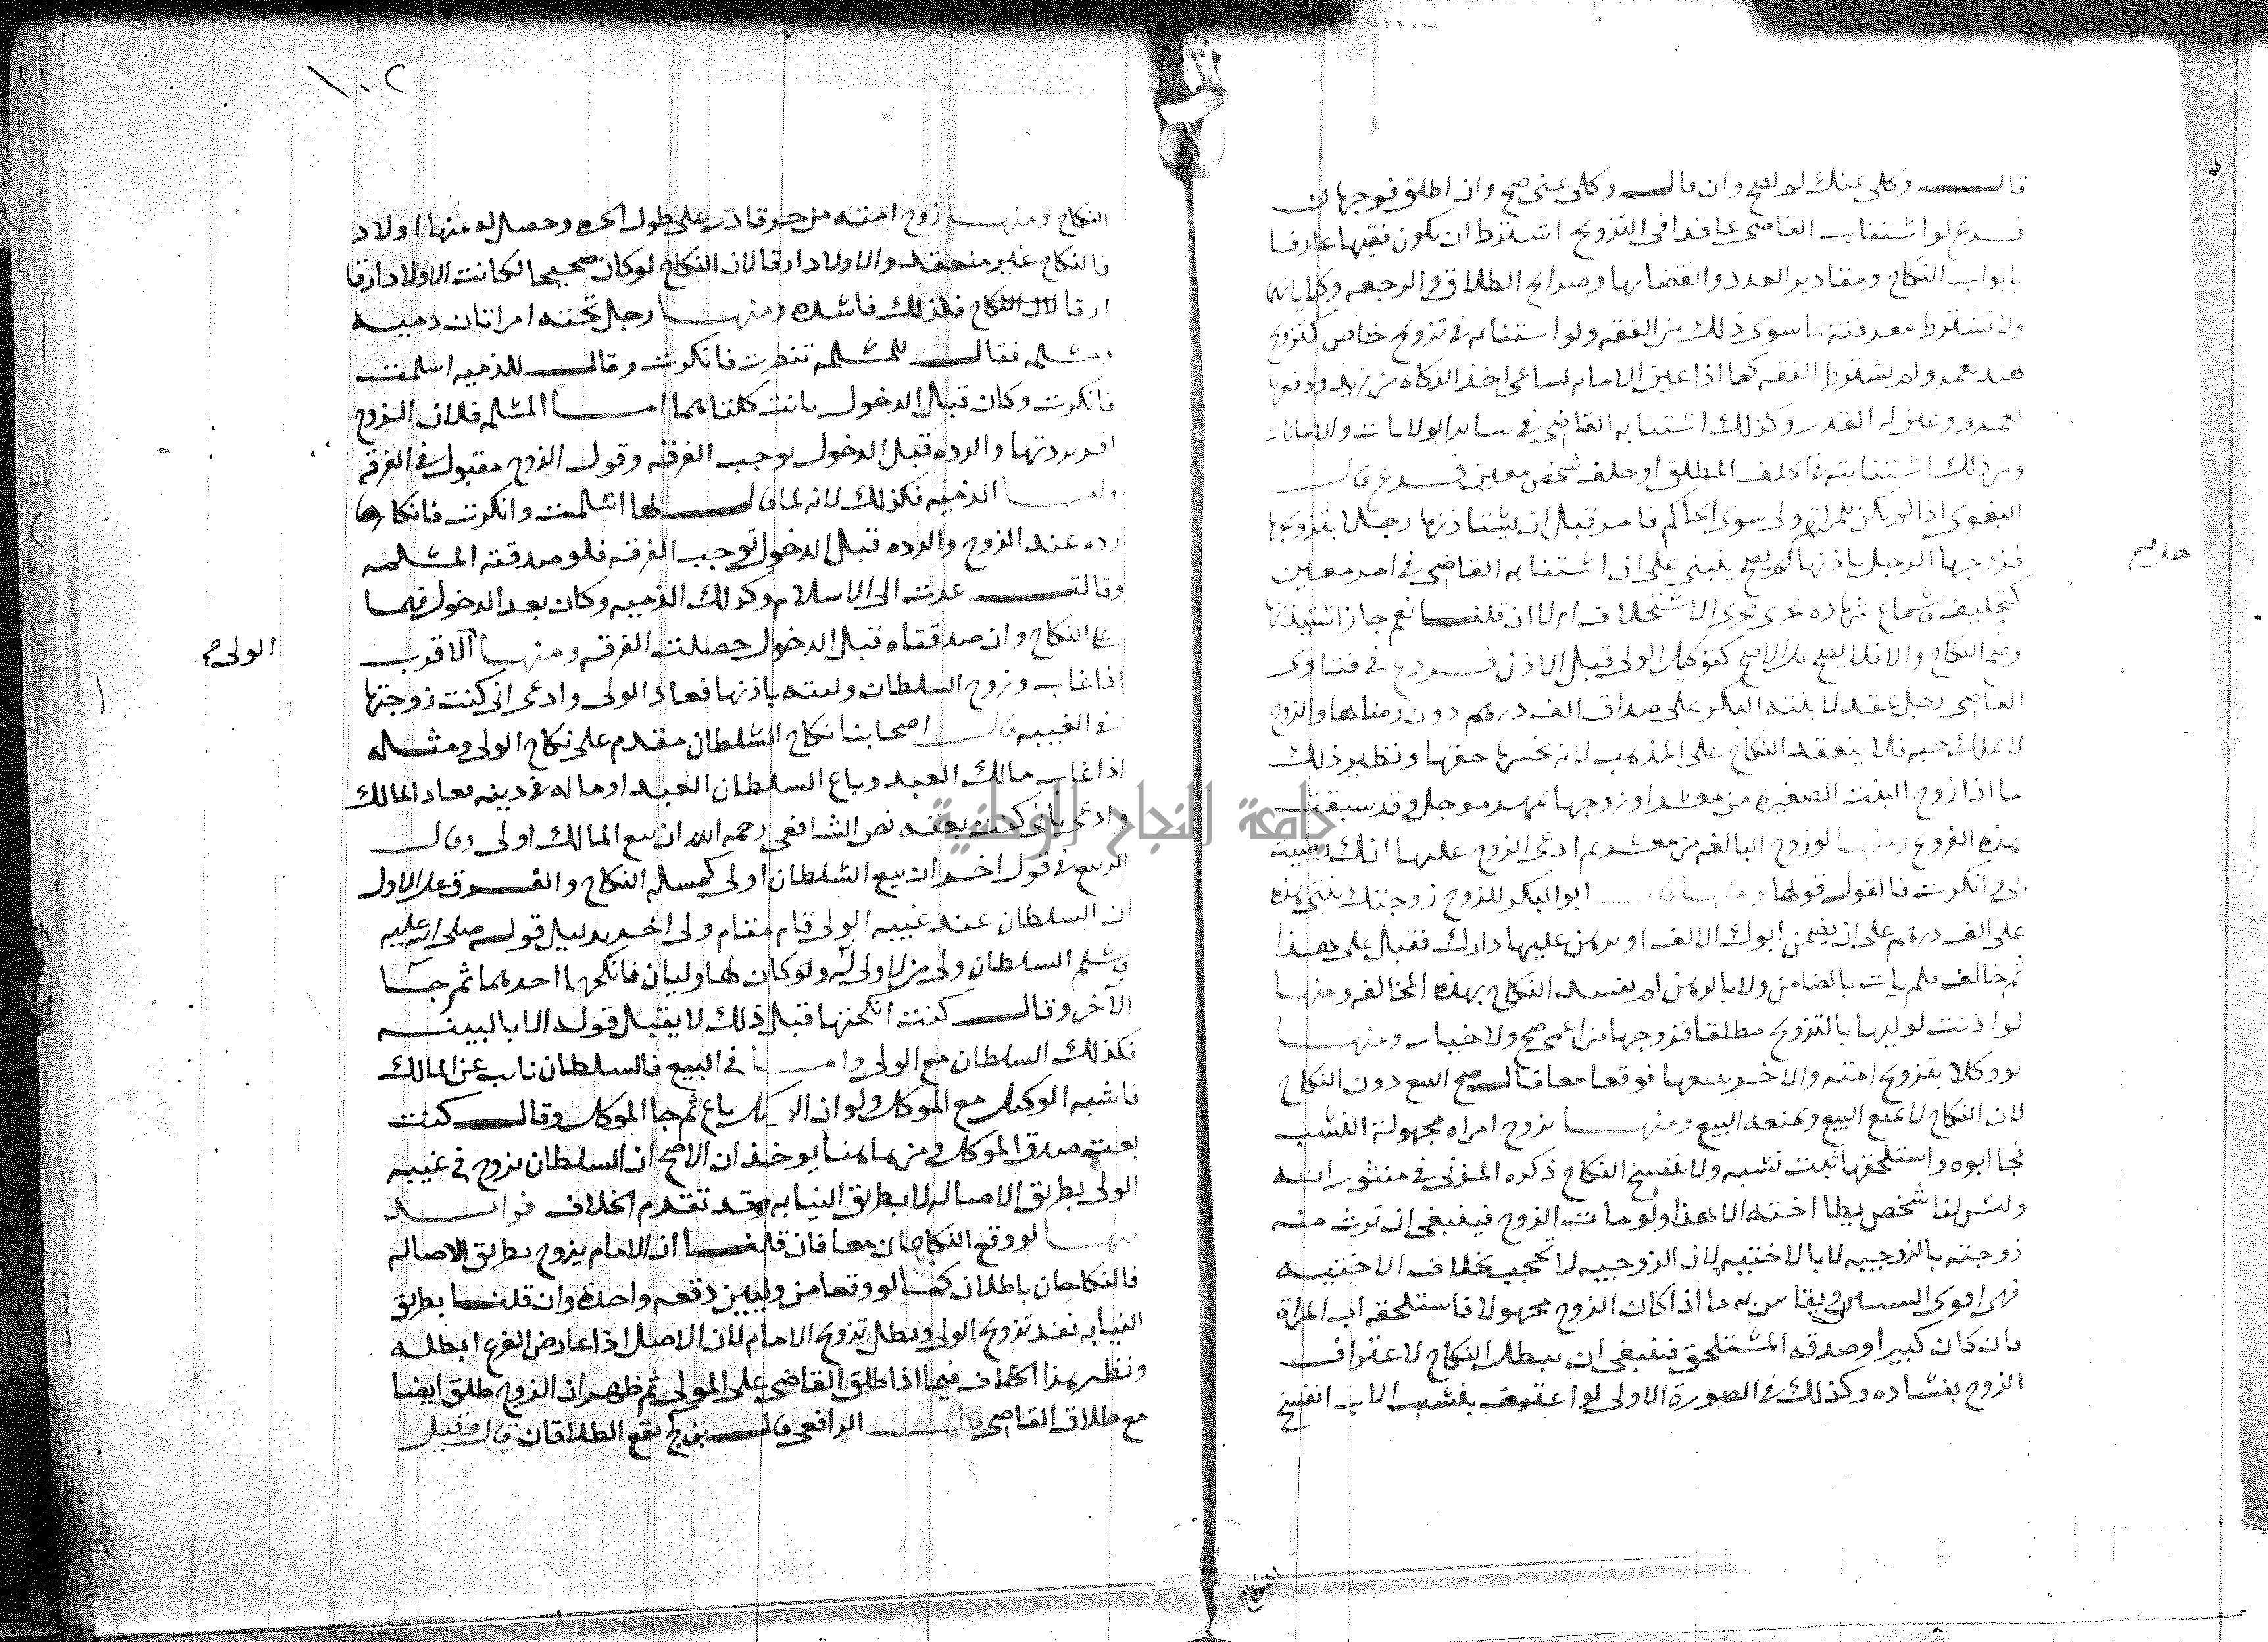 قال وكلى عنك لم يصح وان قال وكلى عنى صح وان اطلق فوجهان
فرع لو استناب القاضى عاقدا فى التزويج اشترط ان يكون فقيها عارفا
بابواب النكاح ومقادير العدد وانقضايها وصرايح الطلاق والرجعه وكناياتها
ولا تشترط معرفته ما سوى ذلك من الفقه ولو استنابه فى تزويج خاص كتزويج
هند بعمرو لم يشترط الفقه كما اذا عين الامام لساعى اخذ الزكاه من زيد ودفعها
لعمرو وعين له القدر وكذلك استنابه القاضى فى ساير الولايات والامانات
ومن ذلك استنابته فى الحلف المطلق او حلف شخص معين فرع قال
البغوى اذا لم يكن للمراة ولى سوى الحاكم فامر قبل ان يستاذنها رجلا بتزويجها
فزوجها الرجل باذنها لم يصح ينبنى على ان استنابه القاضى فى امر معين
كتحليف وسماع شهاده يجرى مجرى الاستخلاف ام لا ان قلنا نعم جاز استيذانها
وصح النكاح والا فلا يصح على الاصح كتوكيل الولى قبل الاذن فرع فى فتاوى
القاضى رجل عقد لابنته البكر على صداق الف درهم دون رضاها والزوج
لا يملك حبه فلا ينعقد النكاح على المذهب لانه بخسها حقها ونظير ذلك
ما اذا زوج البنت الصغيره من معسر او زوجها بمهر موجل وقد سبقت
هذه الفروع ومنها لو زوج البالغه من معسر ثم ادعى الزوج عليها انك رضيت
بى وانكرت فالقول قولها ومنها قال ابو البكر للزوج زوجتك بنتى هذه
على الف درهم على ان يضمن ابوك الالف او يرهن عليها دارك فقبل على هذا
ثم خالف فلم يات بالضامن ولا بالرهن لم يفسد النكاح بهذه المخالفه ومنها
لو اذنت لوليها بالتزويج مطلقا فزوجها من اعمى صح ولا خيار ومنها
لو وكلا بتزويج امته والاخر ببيعها فوقعا معا قال صح البيع دون النكاح
لان النكاح لا يمنع البيع ويمنعه البيع ومنها تزوج امراه مجهولة النسب
فجا ابوه واستلحقها ثبت نسبه ولا ينفسخ النكاح ذكره المزنى فى منثوراته
وليس لنا شخص يطا اخته الا هذا ولو مات الزوج فينبغى ان ترث منه
زوجته بالزوجيه لا بالاختيه لان الزوجيه لا تحجب بخلاف الاختيه
فهى اقوى السببين ويقاس به ما اذا كان الزوج مجهولا فاستلحقه اب المراة
فان كان كبيرا وصدقه المستلحق فينبغى ان يبطل النكاح لاعتراف
الزوج بفساده وكذلك فى الصورة الاولى لو اعترف بنسب الاب انفسخ
هديه
النكاح
١٠٢
النكاح ومنها زوج امته من حر قادر على طول الحره وحصل له منها اولاد
فالنكاح غير منعقد والاولاد ارقا لان النكاح لو كان صحيحا لكانت الاولاد ارقا
ارقا لان النكاح فلذلك فاسده ومنها رجل تحته امراتان دميه
ومسلمه فقال للمسلمه تنصرت فانكرت وقال للذميه اسلمت
فانكرت وكان قبل الدخول بانت كلتاهما اما المسلمه فلان الزوج
اقر بردتها والرده قبل الدخول توجب الفرقه وقول الزوج مقبول فى الفرقه
واما الذميه فكذلك لانه لما قال لها اسلمت وانكرت فانكارها
رده عند الزوج والرده قبل الدخول توجب الفرقه فلو صدقته المسلمه
وقالت عدت الى الاسلام وكذلك الذميه وكان بعد الدخول فهما
على النكاح وان صدقتاه قبل الدخول حصلت الفرقه ومنها الاقرب
الولى
اذا غاب وزوج السلطان وليته باذنها فعاد الولى وادعى انى كنت زوجتها
فى الغيبه قال اصحابنا نكاح السلطان مقدم على نكاح الولى ومثله
اذا غاب مالك العبد وباع السلطان العبد او ماله فى دينه فعاد المالك
وادعى بانى كنت بعته نص الشافعى رحمه الله ان بيع المالك اولى وقال
الربيع فى قول اخر ان بيع السلطان اولى كمساله النكاح والفرق على الاول
ان السلطان عند غيبه الولى قام مقام ولى اخر بدليل قوله صلى الله عليه
وسلم السلطان ولى من لا ولى له ولو كان لها وليان فانكحها احدهما ثم جا
الاخر وقال كنت انكحتها قبل ذلك لا يقبل قوله الا بالبينه
فكذلك السلطان مع الولى واما فى البيع فالسلطان ناب عن المالك
فاشبه الوكيل مع الموكل ولو ان الوكيل باع ثم جا الموكل وقال كنت
بعت صدق الموكل ومن هاهنا يوخذ ان الاصح ان السلطان يزوج فى غيبه
الولى بطريق الاصاله لا بطريق النيابه وقد تقدم الخلاف فوايد
منها لو وقع النكاحان معا فان قلنا ان الامام يزوج بطريق الاصاله
فالنكاحان باطلان كما لو وقعا من وليين دفعه واحدة وان قلنا بطريق
النيابه نفد تزويج الولى وبطل تزويج الامام لان الاصل اذا عارض الفرع ابطله
ونظير هذا الخلاف فيما اذا طلق القاضى على المولى ثم ظهر ان الزوج طلق ايضا
مع طلاق القاضى قال الرافعى قال بن كج يقع الطلاقان قال وقيل
جامعة النجاح الوطنية